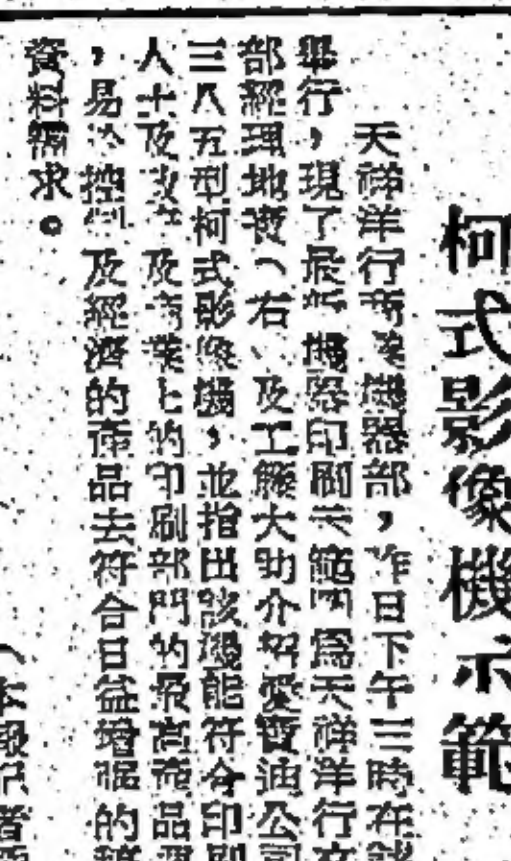 柯式影像機示範
天祥洋行商業機器部,昨日下午三時在
舉行,現了最新機器印刷示範 為天祥洋行
部經理地 (右)及工 大助介紹愛寶油公司
三八五型柯式影像機,並指出該機能符合印刷
人士及政府及商業上的印刷部門的最高產品
,易於控制及經濟的產品去符合日益增 的
資料需求。
(本報記者